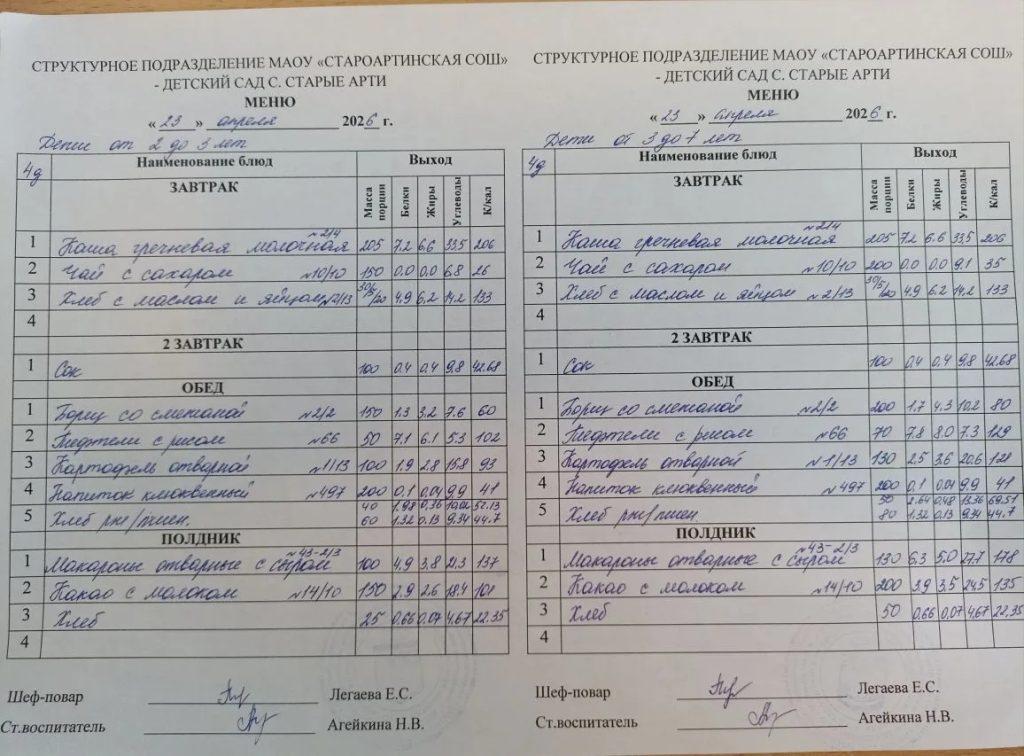 СТРУКТУРНОЕ ПОДРАЗДЕЛЕНИЕ МАОУ «СТАРОАРТИНСКАЯ СОШ»
- ДЕТСКИЙ САД С. СТАРЫЕ АРТИ
МЕНЮ
« 23 » апреля 2026 г.
Дети от 2 до 3 лет
4д Наименование блюд Выход
ЗАВТРАК Масса порции Белки Жиры Углеводы К/кал
1 Каша гречневая молочная №2/4 205 7.2 6.6 33,5 206
2 Чай с сахаром №10/10 150 0.0 0.0 6.8 26
3 Хлеб с маслом и яйцом №2/13 30/5/20 4.9 6.2 14.2 133
4
2 ЗАВТРАК
1 Сок 100 0.4 0.4 9.8 42.68
ОБЕД
1 Борщ со сметаной №2/2 150 1.3 3.2 7.6 60
2 Тефтели с рисом №66 50 7.1 6.1 5.3 102
3 Картофель отварной №1/13 100 1.9 2.8 15.8 93
4 Напиток клюквенный №497 200 0,1 0,04 9.9 41
5 Хлеб рж/пшен. 40 1.98 0,36 10.02 52.13
60 1.32 0.13 9.34 44.7
ПОЛДНИК
1 Макароны отварные с сыром №43-2/3 100 4,9 3,8 21.3 137
2 Какао с молоком №14/10 150 2.9 2.6 18.4 101
3 Хлеб 25 0,66 0,07 4,67 22.35
4
Шеф-повар Легаева Е.С.
Ст.воспитатель Агейкина Н.В.
СТРУКТУРНОЕ ПОДРАЗДЕЛЕНИЕ МАОУ «СТАРОАРТИНСКАЯ СОШ»
- ДЕТСКИЙ САД С. СТАРЫЕ АРТИ
МЕНЮ
« 23 » апреля 2026 г.
Дети от 3 до 7 лет
4д Наименование блюд Выход
ЗАВТРАК Масса порции Белки Жиры Углеводы К/кал
1 Каша гречневая молочная №2/4 205 7.2 6.6 33,5 206
2 Чай с сахаром №10/10 200 0.0 0.0 9.1 35
3 Хлеб с маслом и яйцом №2/13 30/5/20 4.9 6.2 14.2 133
4
2 ЗАВТРАК
1 Сок 100 0.4 0.4 9.8 42.68
ОБЕД
1 Борщ со сметаной №2/2 200 1.7 4.3 10,2 80
2 Тефтели с рисом №66 70 7.8 8.0 7.3 129
3 Картофель отварной №1/13 130 2.5 3.6 20.6 121
4 Напиток клюквенный №497 200 0,1 0,04 9,9 41
5 Хлеб рж/пшен. 50 2.64 0,48 13.36 69.51
80 1.32 0.13 9.34 44.7
ПОЛДНИК
1 Макароны отварные с сыром №43-2/3 130 6,3 5.0 27.7 178
2 Какао с молоком №14/10 200 3.9 3,5 24,5 135
3 Хлеб 50 0,66 0,07 4,67 22.35
4
Шеф-повар Легаева Е.С.
Ст.воспитатель Агейкина Н.В.